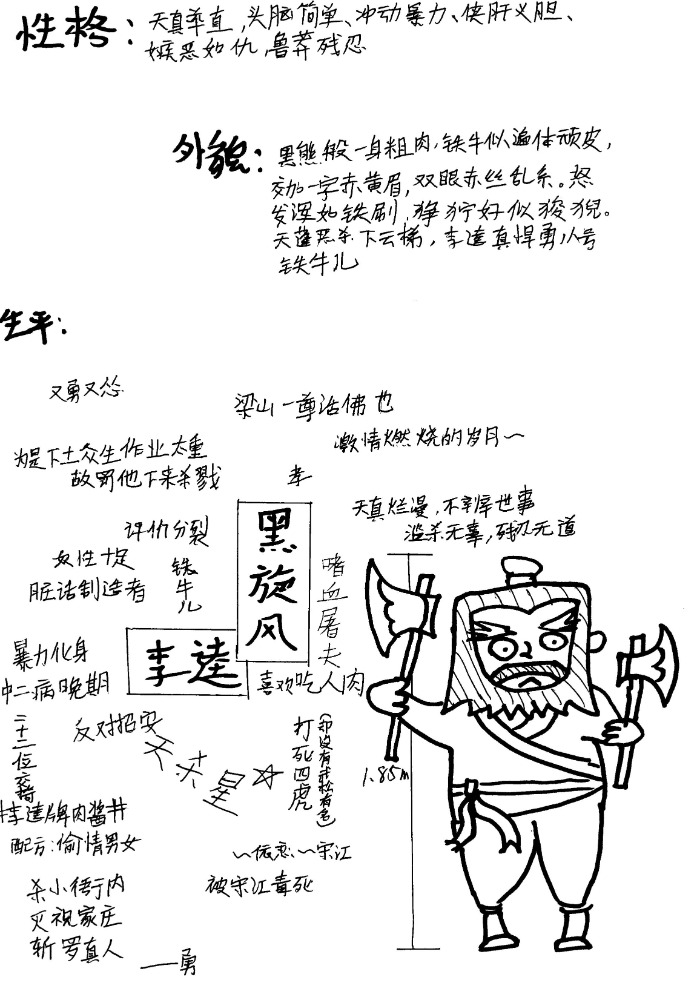 性格：天真率直，头脑简单、冲动暴力、侠肝义胆、
嫉恶如仇，鲁莽残忍
外貌：黑熊般一身粗肉，铁牛似遍体顽皮，
交加一字赤黄眉，双眼赤丝乱系。怒
发浑如铁刷，狰狞好似狻猊。
天蓬恶杀下云梯，李逵真悍勇，人号
铁牛儿
生平：
又勇又怂
梁山一尊活佛也
激情燃烧的岁月～
为是下土众生作业太重
故罚他下来杀戮
孝
天真烂漫，不辞世事
滥杀无辜，残忍无道
评价分裂
奴性十足
脏话制造者
铁牛儿
黑旋风
嗜血屠夫
李逵
喜欢吃人肉
暴力化身
中二病晚期
二十二位交椅
反对招安
天杀星☆
打死四虎
（却没有武松有名）
1.85m
李逵牌肉酱
配方：偷情男女
～依恋～宋江
被宋江毒死
杀小衙内
灭祝家庄
斩罗真人
——勇